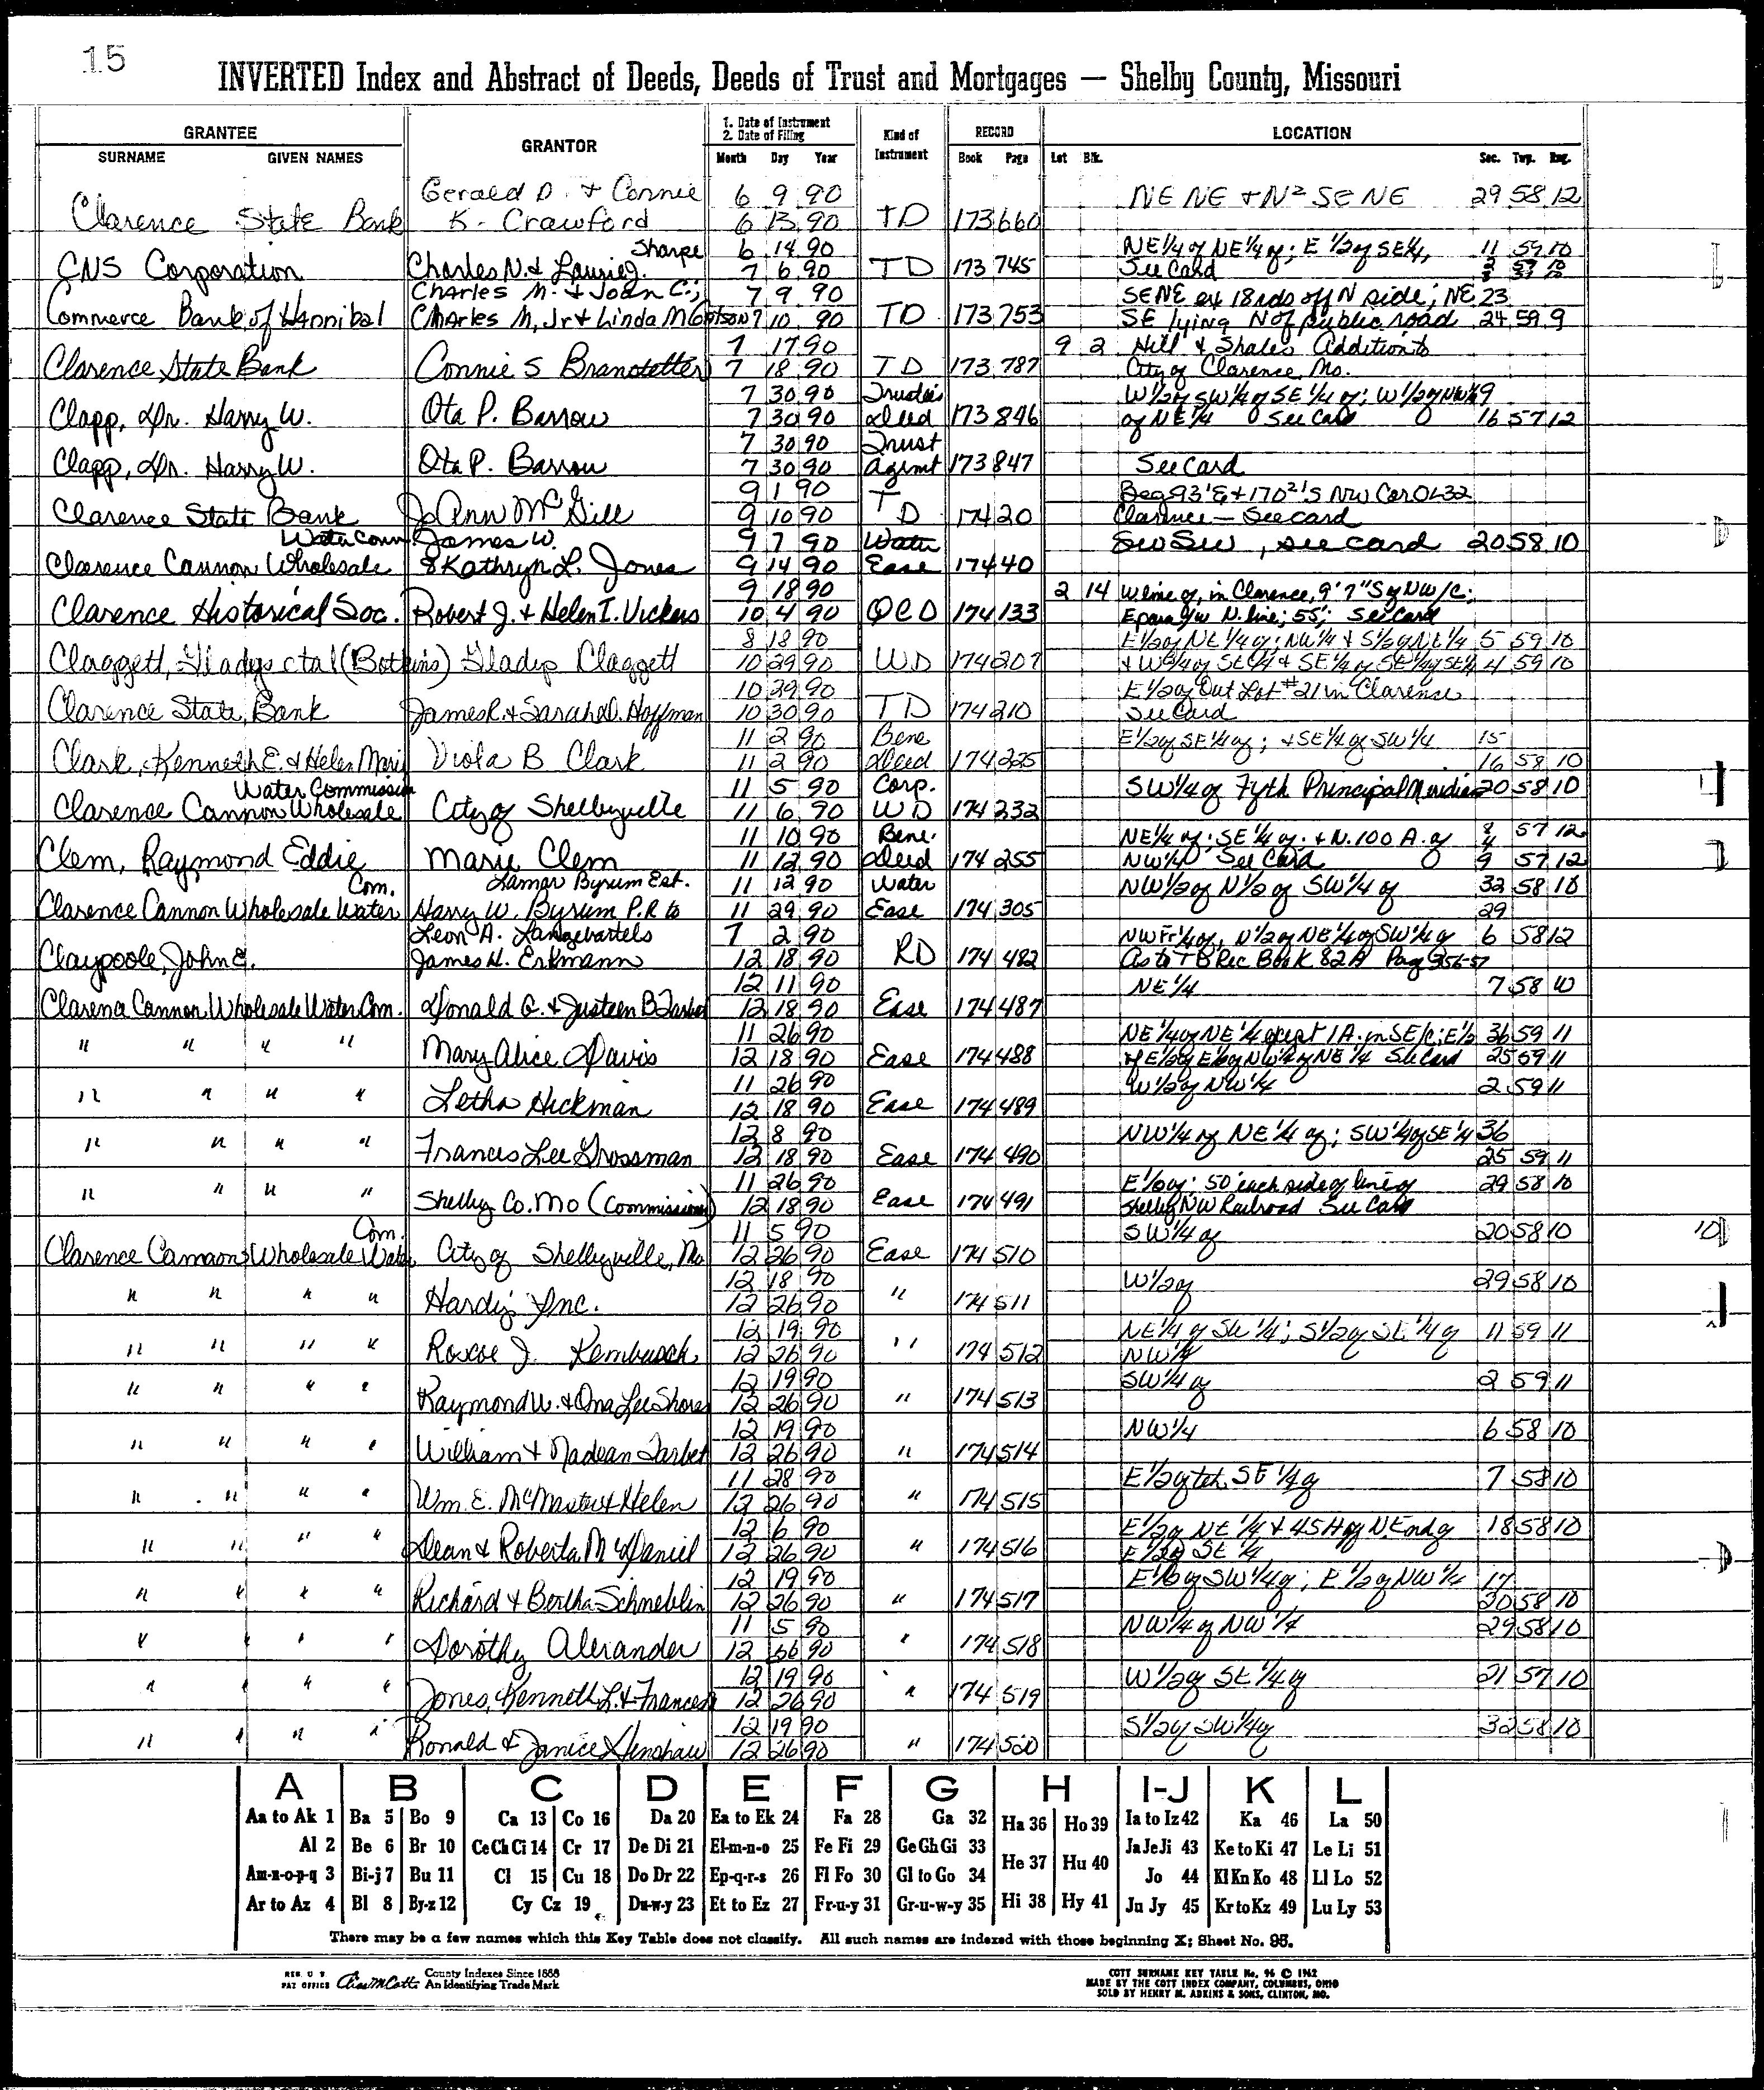 15
INVERTED Index and Abstract of Deeds, Deeds of Trust and Mortgages — Shelby County, Missouri
GRANTEE GRANTOR 1. Date of Instrument 2. Date of Filing Kind of Instrument RECORD LOCATION
SURNAME GIVEN NAMES Month Day Year Book Page Lot Blk. Sec. Twp. Rng.
Gerald D. & Connie 6 9 90 NE NE + N² SE NE 29 58 12
Clarence State Bank K. Crawford 6 13 90 TD 173 660
Sharpe 6 14 90 NE 1/4 of NE 1/4 of; E 1/2 of SE 1/4, 11 59 10
CNS Corporation Charles N. & Laurie J. 7 6 90 TD 173 745 See Card
Charles M. & Joan C.; 7 9 90 SE NE ex 18 rds off N side; NE 23
Commerce Bank of Hannibal Charles M, Jr & Linda M 7 10 90 TD 173 753 SE lying N of public road 24 59 9
7 17 90 9 2 Hill & Shales Addition to
Clarence State Bank Connie S Branstetter 7 18 90 TD 173 787 City of Clarence, Mo.
7 30 90 Trustee's W 1/2 of SW 1/4 of SE 1/4 of; W 1/2 of NW 1/4 9
Clapp, Dr. Harry W. Ota P. Barrow 7 30 90 Deed 173 846 of NE 1/4 See Card 16 57 12
7 30 90 Trust
Clapp, Dr. Harry W. Ota P. Barrow 7 30 90 Agemt 173 847 See Card
9 1 90 T Beg 93' E + 170²' S NW Cor OL 32
Clarence State Bank JoAnn McGill 9 10 90 D 174 20 Clarence — See card
Water Comm James W. 9 7 90 Water SW SW, see card 20 58 10
Clarence Cannon Wholesale & Kathryn L. Jones 9 14 90 Ease 174 40
9 18 90 2 14 W line of, in Clarence, 9' 7" S of NW/C;
Clarence Historical Soc. Robert J. & Helen I. Vickers 10 4 90 QCD 174 133 E para/w N. line; 55'; See Card
8 18 90 E 1/2 of NE 1/4 of; NW 1/4 & S 1/2 of NE 1/4 5 59 10
Claggett, Gladys etal (Botkins) Gladys Claggett 10 29 90 WD 174 207 & SE 1/4 of SE 1/4 of SE 1/4 4 59 10
10 29 90 E 1/2 of Out Lot #21 in Clarence
Clarence State Bank James R. & Sarah D. Hoffman 10 30 90 TD 174 210 See Card
11 2 90 Bene E 1/2 of SE 1/4 of; & SE 1/4 of SW 1/4 15
Clark, Kenneth E. & Helen Marie Viola B Clark 11 2 90 Deed 174 225 16 58 10
Water Commission 11 5 90 Corp. SW 1/4 of Fyth Principal Meridian 20 58 10
Clarence Cannon Wholesale City of Shelbyville 11 6 90 WD 174 232
11 10 90 Bene. NE 1/4 of; SE 1/4 of; & N. 100 A. of 8 57 12
Clem, Raymond Eddie Marie Clem 11 12 90 Deed 174 255 NW 1/4 See Card 9 57 12
Com. Lamar Byrum Est. 11 12 90 Water NW 1/2 of N 1/2 of SW 1/4 of 32 58 10
Clarence Cannon Wholesale Water Harry W. Byrum P.R to 11 29 90 Ease 174 305 29
Leon A. Langebartels 7 2 90 NW Fr 1/4 of, N 1/2 of NE 1/4 of SW 1/4 of 6 58 12
Claypoole, John E. James H. Erkmann 12 18 90 RD 174 482 As to TB Rec Book 82A Page 356-57
12 11 90 NE 1/4 7 58 10
Clarence Cannon Wholesale Water Com. Donald G. & Justeen B Tarbet 12 18 90 Ease 174 487
11 26 90 NE 1/4 of NE 1/4 except 1 A. in SE/c; E 1/2 36 59 11
" " " " Mary Alice Davis 12 18 90 Ease 174 488 of E 1/2 of E 1/2 of NW 1/4 of NE 1/4 See Card 25 59 11
11 26 90 W 1/2 of NW 1/4 2 59 11
" " " " Letha Hickman 12 18 90 Ease 174 489
12 8 90 NW 1/4 of NE 1/4 of; SW 1/4 of SE 1/4 36
" " " " Frances Lee Grossman 12 18 90 Ease 174 490 25 59 11
11 26 90 E 1/2 of; 50' each side of line of 29 58 10
" " " " Shelby Co. Mo (Commissioners) 12 18 90 Ease 174 491 Shelby NW Railroad See Card
Com. 11 5 90 SW 1/4 of 20 58 10
Clarence Cannon Wholesale Water City of Shelbyville, Mo 12 26 90 Ease 174 510
12 18 90 W 1/2 of 29 58 10
" " " " Hardy Inc. 12 26 90 " 174 511
12 19 90 NE 1/4 of SW 1/4; S 1/2 of SE 1/4 of 11 59 11
" " " " Roscoe J. Kembusch 12 26 90 " 174 512 NW 1/4
12 19 90 SW 1/4 of 2 59 11
" " " " Raymond W. & Ona Lee Shores 12 26 90 " 174 513
12 19 90 NW 1/4 6 58 10
" " " " William & Nadean Tarbet 12 26 90 " 174 514
11 28 90 E 1/2 of teh SE 1/4 of 7 58 10
" " " " Wm. E. McMaster & Helen 12 26 90 " 174 515
12 6 90 E 1/2 of NE 1/4 & 45 A of N. End of 18 58 10
" " " " Dean & Roberta McDaniel 12 26 90 " 174 516 E 1/2 of SE 1/4
12 19 90 E 1/2 of SW 1/4 of; E 1/2 of NW 1/4 17
" " " " Richard & Bertha Schneblin 12 26 90 " 174 517 20 58 10
11 5 90 NW 1/4 of NW 1/4 29 58 10
" " " " Dorothy Alexander 12 26 90 " 174 518
12 19 90 W 1/2 of SE 1/4 of 21 57 10
" " " " Jones, Kenneth L. & Frances 12 26 90 " 174 519
12 19 90 S 1/2 of SW 1/4 of 32 58 10
" " " " Ronald & Janice Henshaw 12 26 90 " 174 520
A B C D E F G H I-J K L
Aa to Ak 1 Ba 5 Bo 9 Ca 13 Co 16 Da 20 Ea to Ek 24 Fa 28 Ga 32 Ha 36 Ho 39 Ia to Iz 42 Ka 46 La 50
Al 2 Be 6 Br 10 Ce Ch Ci 14 Cr 17 De Di 21 El-m-n-o 25 Fe Fi 29 Ge Gh Gi 33 He 37 Hu 40 Ja Je Ji 43 Ke to Ki 47 Le Li 51
Am-n-o-p-q 3 Bi-j 7 Bu 11 Cl 15 Cu 18 Do Dr 22 Ep-q-r-s 26 Fl Fo 30 Gl to Go 34 Jo 44 Kl Kn Ko 48 Ll Lo 52
Ar to Az 4 Bl 8 By-z 12 Cy Cz 19 Du-w-y 23 Et to Ez 27 Fr-u-y 31 Gr-u-w-y 35 Hi 38 Hy 41 Ju Jy 45 Kr to Kz 49 Lu Ly 53
There may be a few names which this Key Table does not classify. All such names are indexed with those beginning X; Sheet No. 95.
REG. U S PAT OFFICE County Indexes Since 1888 An Identifying Trade Mark
COTT SURNAME KEY TABLE No. 96 © 1962
MADE BY THE COTT INDEX COMPANY, COLUMBUS, OHIO
SOLD BY HENRY M. ADKINS & SONS, CLINTON, MO.